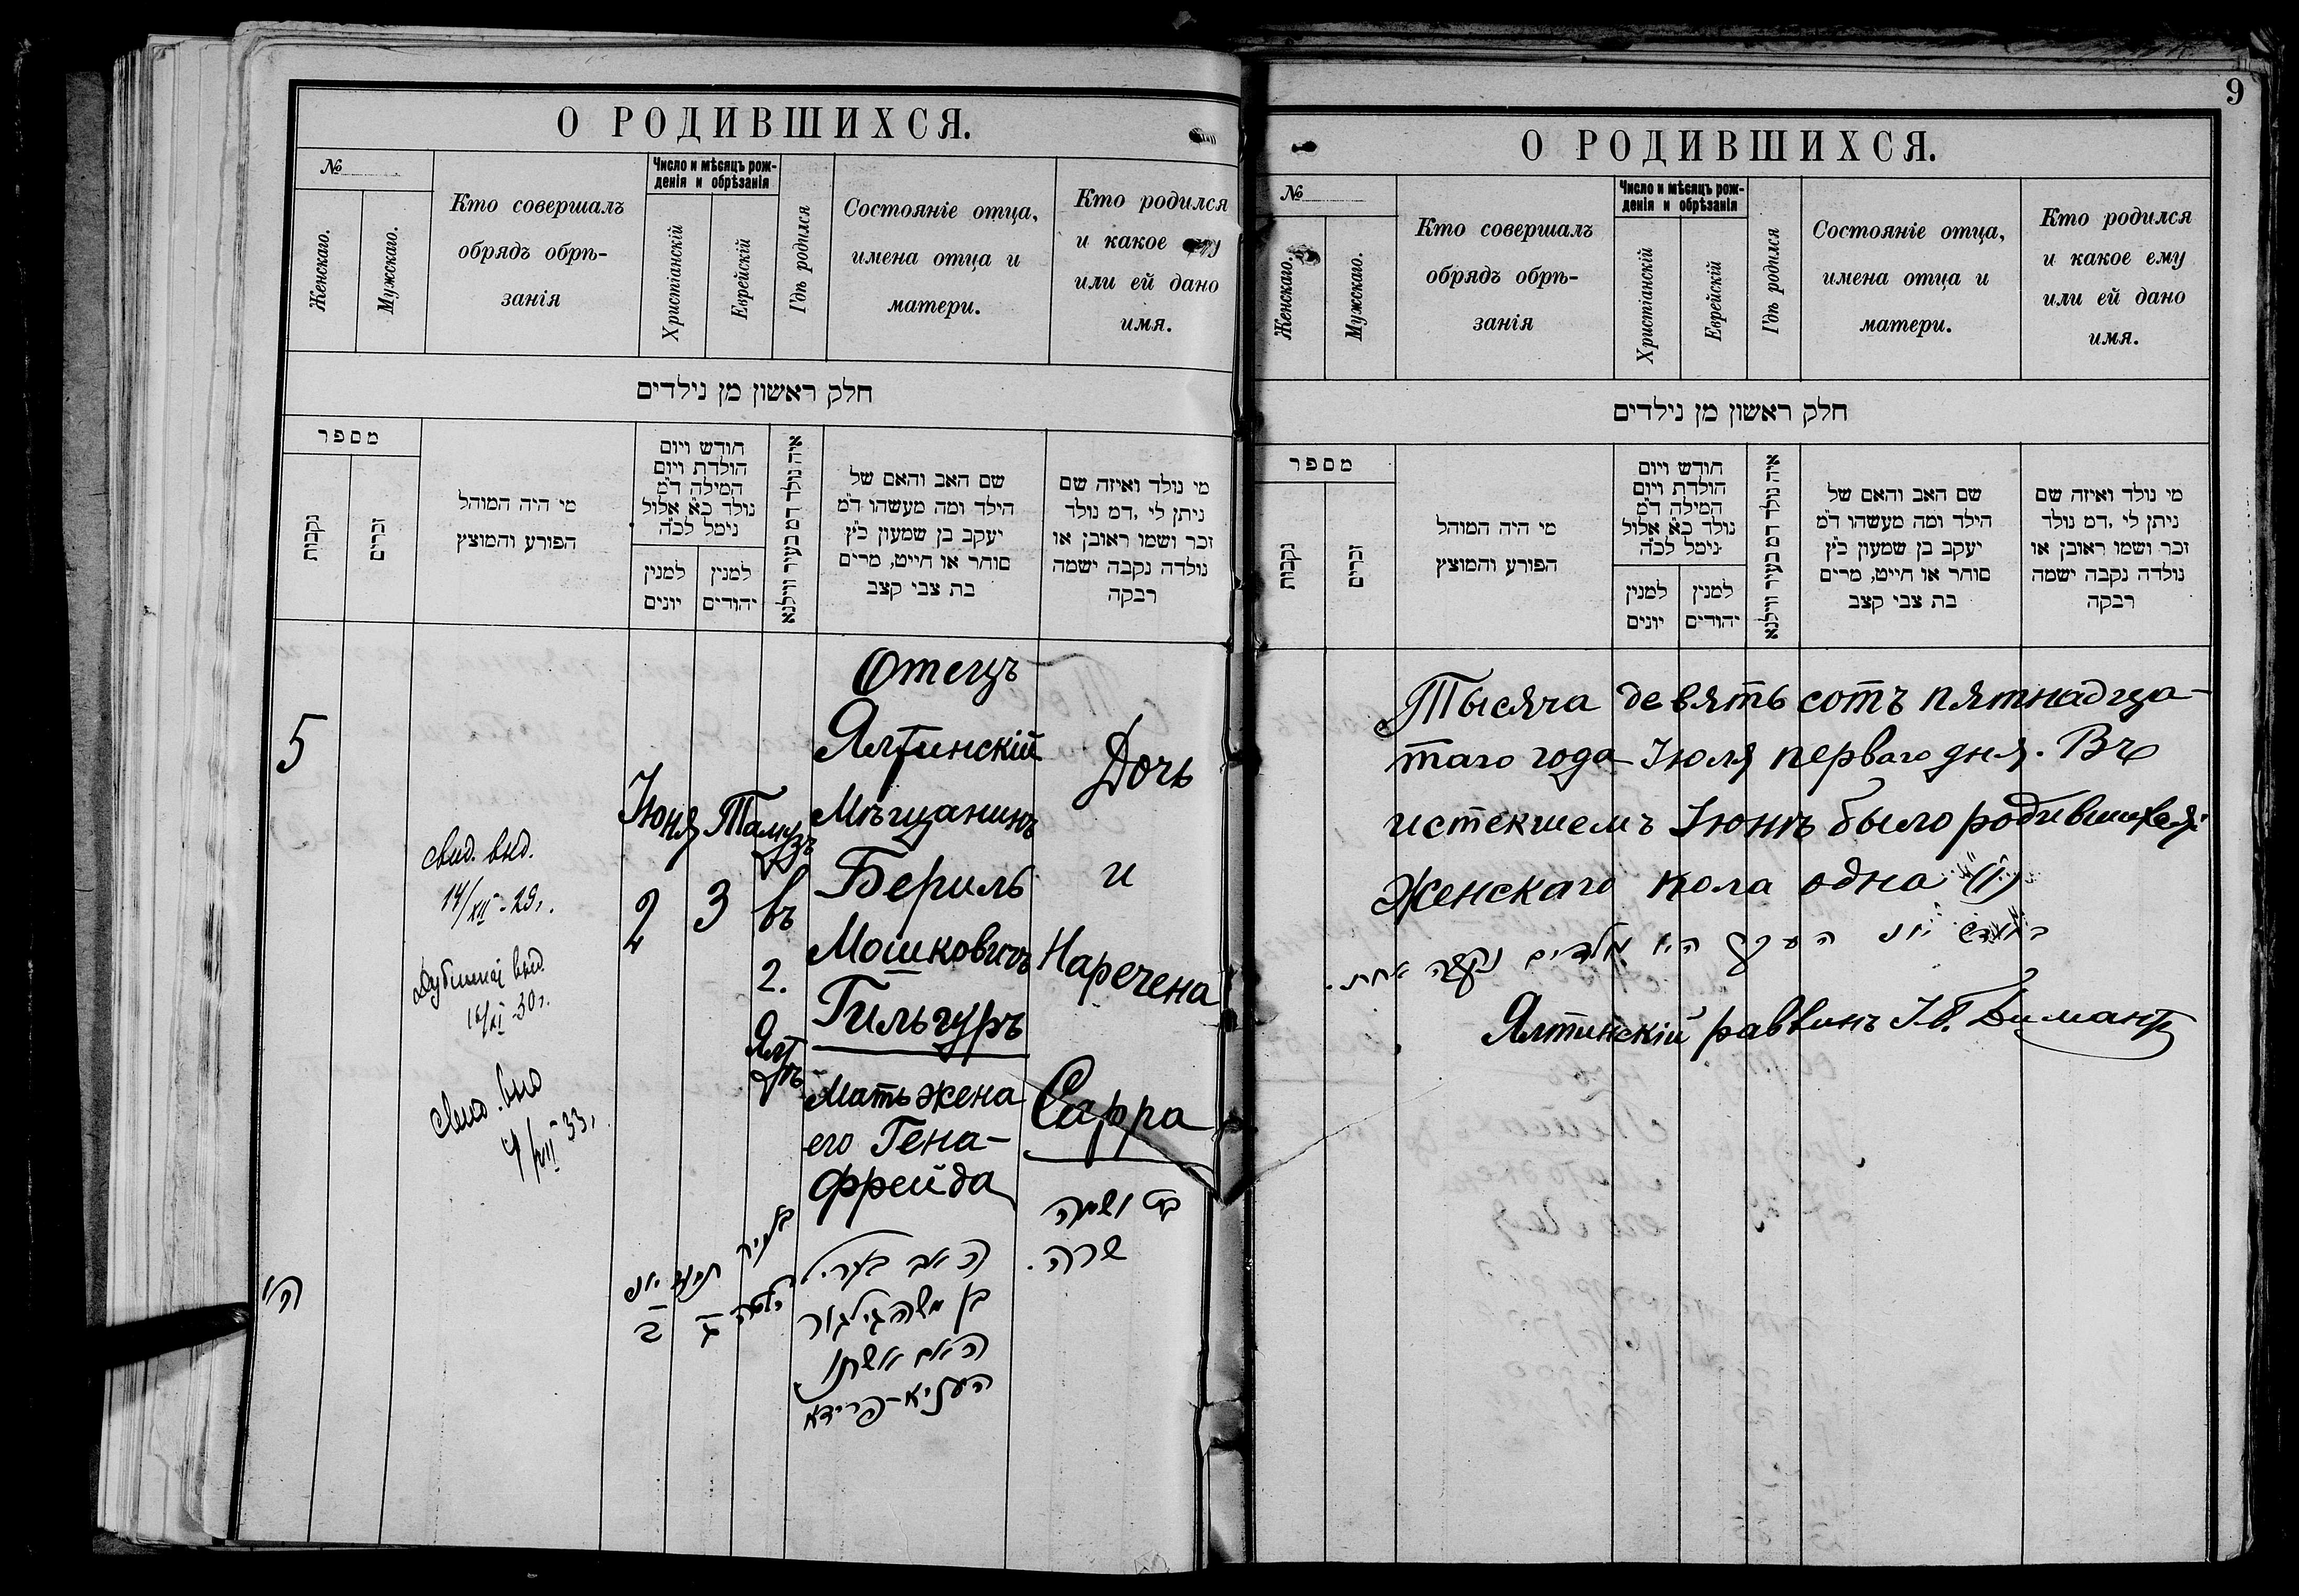 О РОДИВШИХСЯ.
№
Женскаго.
Мужскаго.
Кто совершалъ
обрядъ обрѣ-
занія
Число и мѣсяцъ рож-
денія и обрѣзанія
Христіанскій
Еврейскій
Гдѣ родился
Состояніе отца,
имена отца и
матери.
Кто родился
и какое ему
или ей дано
имя.
חלק ראשון מן נילדים
מספר
נקבות
זכרים
מי היה המוהל
הפורע והמוצץ
חודש ויום
הולדת ויום
המילה ד״מ
נולד כ״א אלול
נימל לכ״ה
למנין
יונים
למנין
יהודים
איה נולד דמ בעיר ווילנא
שם האב והאם של
הילד ומה מעשהו ד״מ
יעקב בן שמעון כ״ץ
סוחר או חייט, מרים
בת צבי קצב
מי נולד ואיזה שם
ניתן לי, דמ נולד
זכר ושמו ראובן או
נולדה נקבה ישמה
רבקה
5
свид. выд.
14/XII-29 г.
выд.
16/XI-30 г.
свид. выд
33 г.
Іюня
2
Тамузъ
3
въ
г.
Ялтѣ
Отецъ
Ялтинскій
Мѣщанинъ
Бериль
Мошковичъ
Гильгуръ
Мать жена
его Гена-
Фрейда
Дочь
и
Наречена
Сарра
ה׳
יוני
ב
תמוז
ג
בעיר
יאלטה
האב בעריל
בן משה גילגור
האם אשתו
העניא-פריידא
בת ושמה
שרה.
9
О РОДИВШИХСЯ.
№
Женскаго.
Мужскаго.
Кто совершалъ
обрядъ обрѣ-
занія
Число и мѣсяцъ рож-
денія и обрѣзанія
Христіанскій
Еврейскій
Гдѣ родился
Состояніе отца,
имена отца и
матери.
Кто родился
и какое ему
или ей дано
имя.
חלק ראשון מן נילדים
מספר
נקבות
זכרים
מי היה המוהל
הפורע והמוצץ
חודש ויום
הולדת ויום
המילה ד״מ
נולד כ״א אלול
נימל לכ״ה
למנין
יונים
למנין
יהודים
איה נולד דמ בעיר ווילנא
שם האב והאם של
הילד ומה מעשהו ד״מ
יעקב בן שמעון כ״ץ
סוחר או חייט, מרים
בת צבי קצב
מי נולד ואיזה שם
ניתן לי, דמ נולד
זכר ושמו ראובן או
נולדה נקבה ישמה
רבקה
Тысяча девять сотъ пятнадца-
таго года Іюля перваго дня. Въ
истекшемъ Іюнѣ было родившихся:
Женскаго пола одна (1)
בחודש יוני העבר היו נולדים נקבה אחת.
Ялтинскій раввинъ